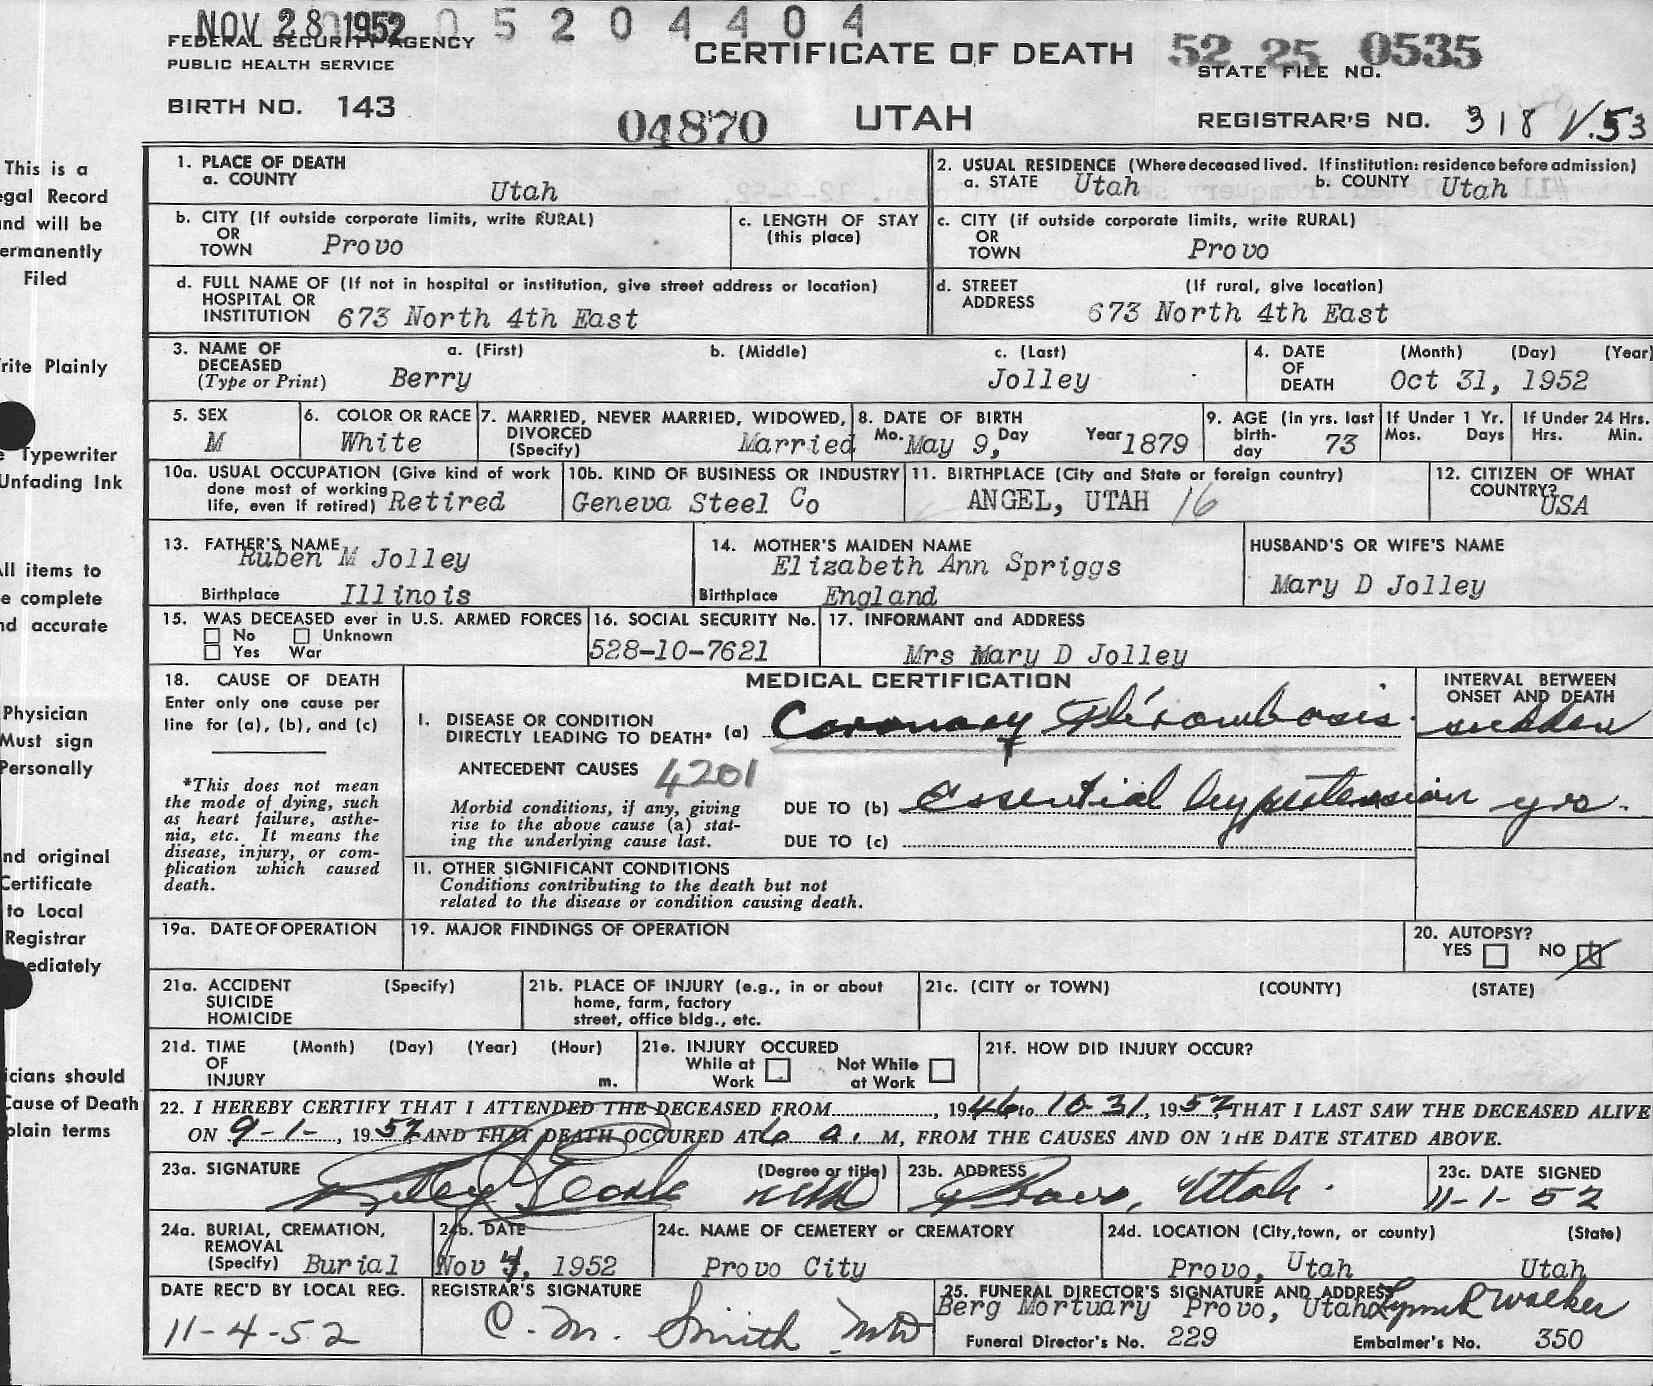 NOV 28 1952 0 5 2 0 4 4 0 4
FEDERAL SECURITY AGENCY
PUBLIC HEALTH SERVICE
CERTIFICATE OF DEATH
52 25 0535
STATE FILE NO.
BIRTH NO. 143
04870
UTAH
REGISTRAR'S NO. 318 V.53
This is a
egal Record
nd will be
ermanently
Filed
rite Plainly
Typewriter
Unfading Ink
ll items to
e complete
nd accurate
Physician
Must sign
Personally
nd original
Certificate
to Local
Registrar
mediately
icians should
Cause of Death
plain terms
1. PLACE OF DEATH
a. COUNTY Utah
2. USUAL RESIDENCE (Where deceased lived. If institution: residence before admission)
a. STATE Utah b. COUNTY Utah
b. CITY (If outside corporate limits, write RURAL)
OR
TOWN Provo
c. LENGTH OF STAY
(this place)
c. CITY (if outside corporate limits, write RURAL)
OR
TOWN Provo
d. FULL NAME OF (If not in hospital or institution, give street address or location)
HOSPITAL OR
INSTITUTION 673 North 4th East
d. STREET (If rural, give location)
ADDRESS 673 North 4th East
3. NAME OF a. (First) b. (Middle) c. (Last)
DECEASED
(Type or Print) Berry Jolley
4. DATE (Month) (Day) (Year)
OF
DEATH Oct 31, 1952
5. SEX
M
6. COLOR OR RACE
White
7. MARRIED, NEVER MARRIED, WIDOWED,
DIVORCED
(Specify) Married
8. DATE OF BIRTH
Mo. May 9, Day Year 1879
9. AGE (in yrs. last
birth-
day 73
If Under 1 Yr.
Mos. Days
If Under 24 Hrs.
Hrs. Min.
10a. USUAL OCCUPATION (Give kind of work
done most of working
life, even if retired) Retired
10b. KIND OF BUSINESS OR INDUSTRY
Geneva Steel Co
11. BIRTHPLACE (City and State or foreign country)
ANGEL, UTAH 16
12. CITIZEN OF WHAT
COUNTRY?
USA
13. FATHER'S NAME
Ruben M Jolley
Birthplace Illinois
14. MOTHER'S MAIDEN NAME
Elizabeth Ann Spriggs
Birthplace England
HUSBAND'S OR WIFE'S NAME
Mary D Jolley
15. WAS DECEASED ever in U.S. ARMED FORCES
No Unknown
Yes War
16. SOCIAL SECURITY No.
528-10-7621
17. INFORMANT and ADDRESS
Mrs Mary D Jolley
18. CAUSE OF DEATH
Enter only one cause per
line for (a), (b), and (c)
*This does not mean
the mode of dying, such
as heart failure, asthe-
nia, etc. It means the
disease, injury, or com-
plication which caused
death.
MEDICAL CERTIFICATION
INTERVAL BETWEEN
ONSET AND DEATH
I. DISEASE OR CONDITION
DIRECTLY LEADING TO DEATH* (a) Coronary Thrombosis. sudden
ANTECEDENT CAUSES 4201
Morbid conditions, if any, giving
rise to the above cause (a) stat-
ing the underlying cause last.
DUE TO (b) Essential hypertension yrs.
DUE TO (c)
11. OTHER SIGNIFICANT CONDITIONS
Conditions contributing to the death but not
related to the disease or condition causing death.
19a. DATE OF OPERATION
19. MAJOR FINDINGS OF OPERATION
20. AUTOPSY?
YES NO X
21a. ACCIDENT (Specify)
SUICIDE
HOMICIDE
21b. PLACE OF INJURY (e.g., in or about
home, farm, factory
street, office bldg., etc.
21c. (CITY or TOWN) (COUNTY) (STATE)
21d. TIME (Month) (Day) (Year) (Hour)
OF
INJURY m.
21e. INJURY OCCURED
While at Not While
Work at Work
21f. HOW DID INJURY OCCUR?
22. I HEREBY CERTIFY THAT I ATTENDED THE DECEASED FROM , 1946 to 10-31, 1952 THAT I LAST SAW THE DECEASED ALIVE
ON 9-1-, 1952 AND THAT DEATH OCCURED AT 6 a. M, FROM THE CAUSES AND ON THE DATE STATED ABOVE.
23a. SIGNATURE (Degree or title)
23b. ADDRESS Provo, Utah.
23c. DATE SIGNED
11-1-52
24a. BURIAL, CREMATION,
REMOVAL
(Specify) Burial
24b. DATE
Nov 4, 1952
24c. NAME OF CEMETERY or CREMATORY
Provo City
24d. LOCATION (City, town, or county) (State)
Provo, Utah Utah
DATE REC'D BY LOCAL REG.
11-4-52
REGISTRAR'S SIGNATURE
C. M. Smith MD
25. FUNERAL DIRECTOR'S SIGNATURE AND ADDRESS
Berg Mortuary Provo, Utah Lynn R Walker
Funeral Director's No. 229 Embalmer's No. 350